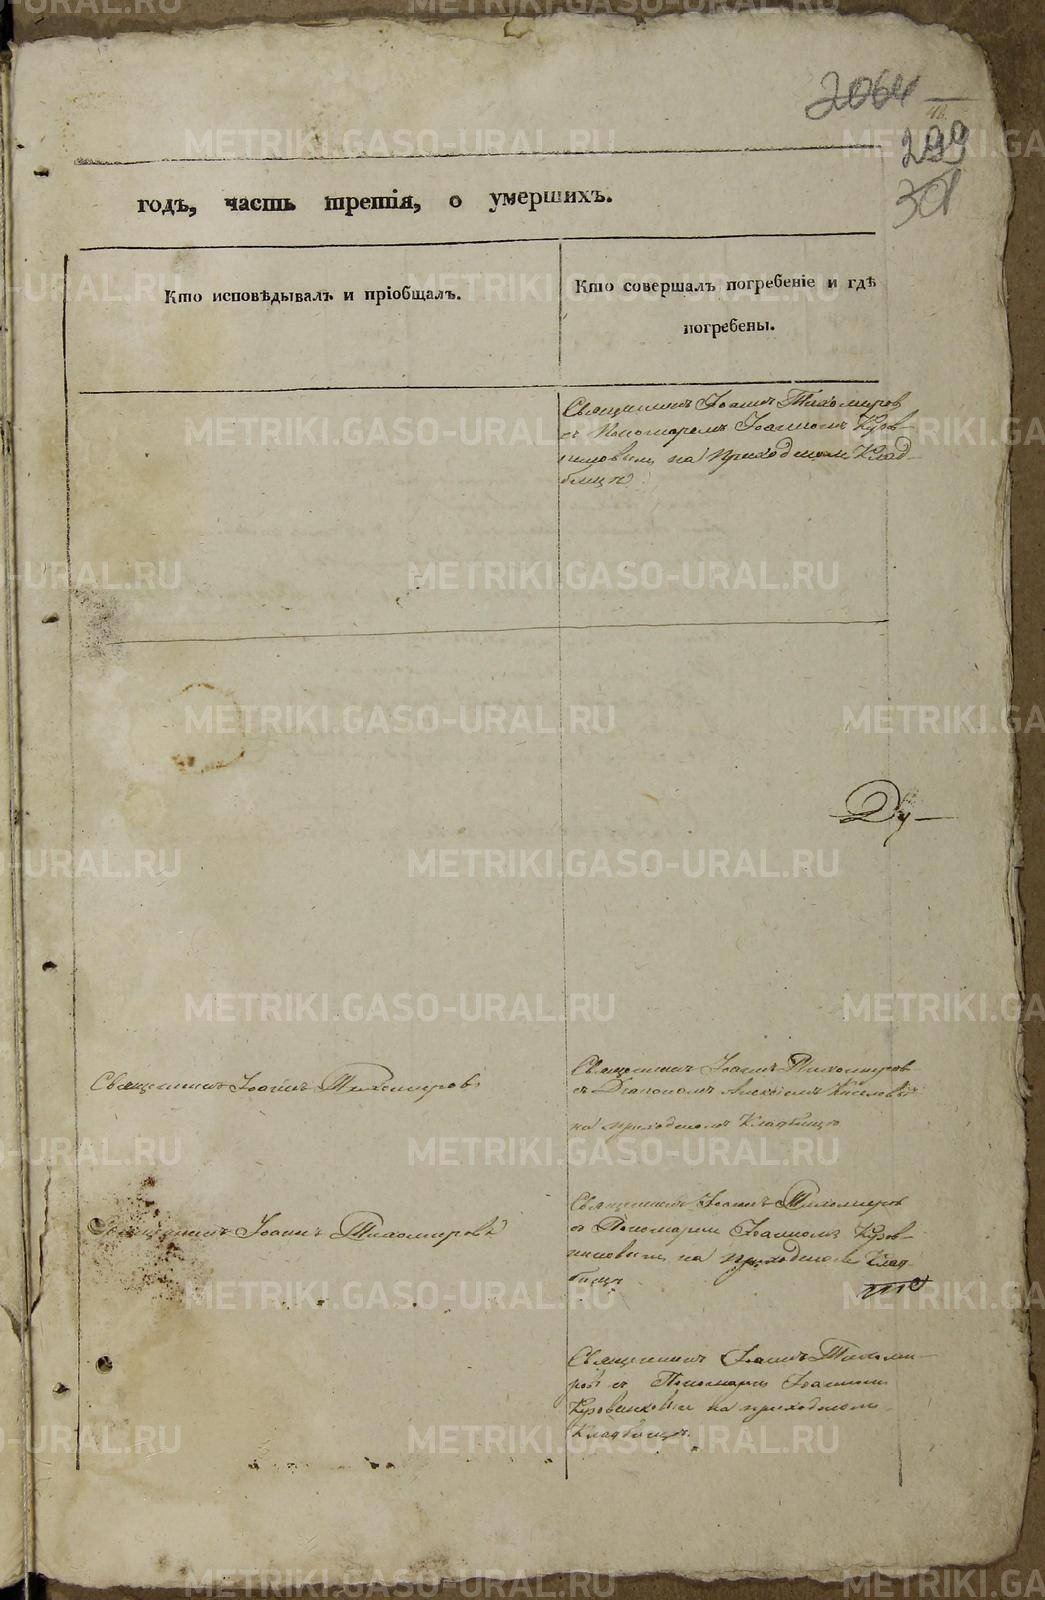 2064
299
301
годъ, часть третія, о умершихъ.
Кто исповѣдывалъ и пріобщалъ.
Кто совершалъ погребеніе и гдѣ
погребены.
Священникъ Іоаннъ Тихомировъ
съ Пономаремъ Іоанномъ Куров-
на приходскомъ Клад-
бищѣ
Священникъ Іоаннъ Тихомировъ
Священникъ Іоаннъ Тихомировъ
съ Діакономъ Алексіемъ Киселовымъ
на приходскомъ Кладбищѣ
Священникъ Іоаннъ Тихомировъ
Священникъ Іоаннъ Тихомировъ
съ Пономаремъ Іоанномъ Куров-
на приходскомъ Клад-
бищѣ
Священникъ Іоаннъ Тихоми-
ровъ съ Пономаремъ Іоанномъ
на приходскомъ
Кладбищѣ
METRIKI.GASO-URAL.RU